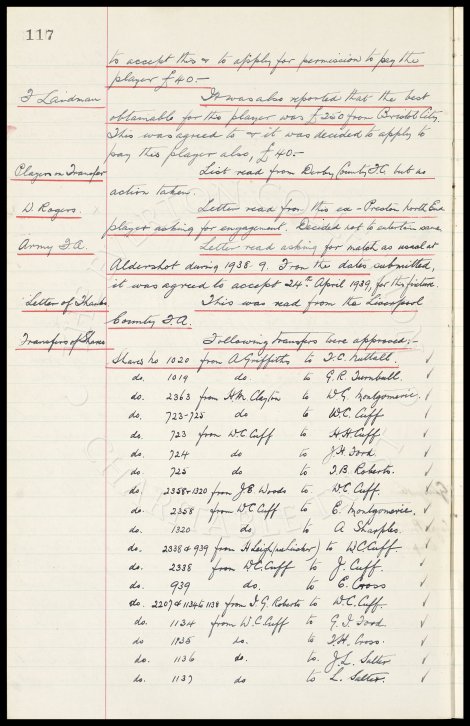 117
to accept this & to apply for permission to pay the
player £40.-
It was also reported that the best
obtainable for this player was £250 from Bristol City.
This was agreed to & it was decided to apply to
pay this player also, £40.-
Players on Transfer List read from Derby County F.C. but no
action taken.
D. Rogers. Letter read from this ex-Preston North End
player asking for engagement. Decided not to entertain same
Army F.A. Letter read asking for match as usual at
Aldershot during 1938-9. From the dates submitted,
it was agreed to accept 24th April 1939, for this fixture.
Letter of Thanks This was read from the Liverpool
County F.A.
Transfers of Shares Following transfers were approved:-
Shares No 1020 from A Griffiths to F.C. Nuttall. ✓
do. 1019 do. to G.R. Turnbull. ✓
do. 2363 from H.M. Clayton to W.G. Montgomerie. ✓
do. 723-725 do to W.C. Cuff ✓
do. 723 from W.C. Cuff to H.H. Cuff ✓
do. 724 do to J.H. Ford. ✓
do. 725 do to T.B. Roberts. ✓
do. 2358 & 1320 from J.E. Woods to W.C. Cuff. ✓
do. 2358 from W.C. Cuff to E. Montgomerie. ✓
do. 1320 do. to A Sharples. ✓
do. 2338 & 939 from H Leigh to W.C. Cuff. ✓
do. 2338 from W.C. Cuff to J. Cuff. ✓
do. 939 do. to E. Cross ✓
do. 2207 & 1134 to 1138 from J.G. Roberts to W.C. Cuff. ✓
do. 1134 from W.C. Cuff to G.J. Ford ✓
do 1135 do. to T.H. Cross. ✓
do. 1136 do. to J.L. Salter ✓
do. 1137 do to L. Salter. ✓